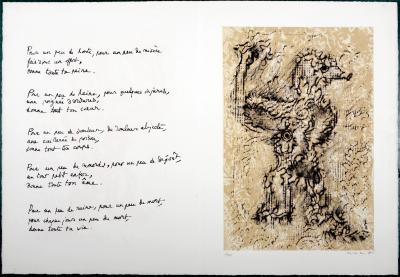 Pour un peu de honte, pour un peu de misère
fais donc un effort,
donne toute ta peine.
Pour un peu de haine, pour quelques
une poignée d'ordures,
donne tout ton cœur.
Pour un peu de douleur, de douleur abjecte,
une cuillerée de poison,
donne tout ton corps.
Pour un peu de remords, pour un peu de dégoût
un tout petit enfer,
donne toute ton âme.
Pour un peu de ruine, pour un peu de mort
pour chaque jour un peu de mort
donne toute ta vie.